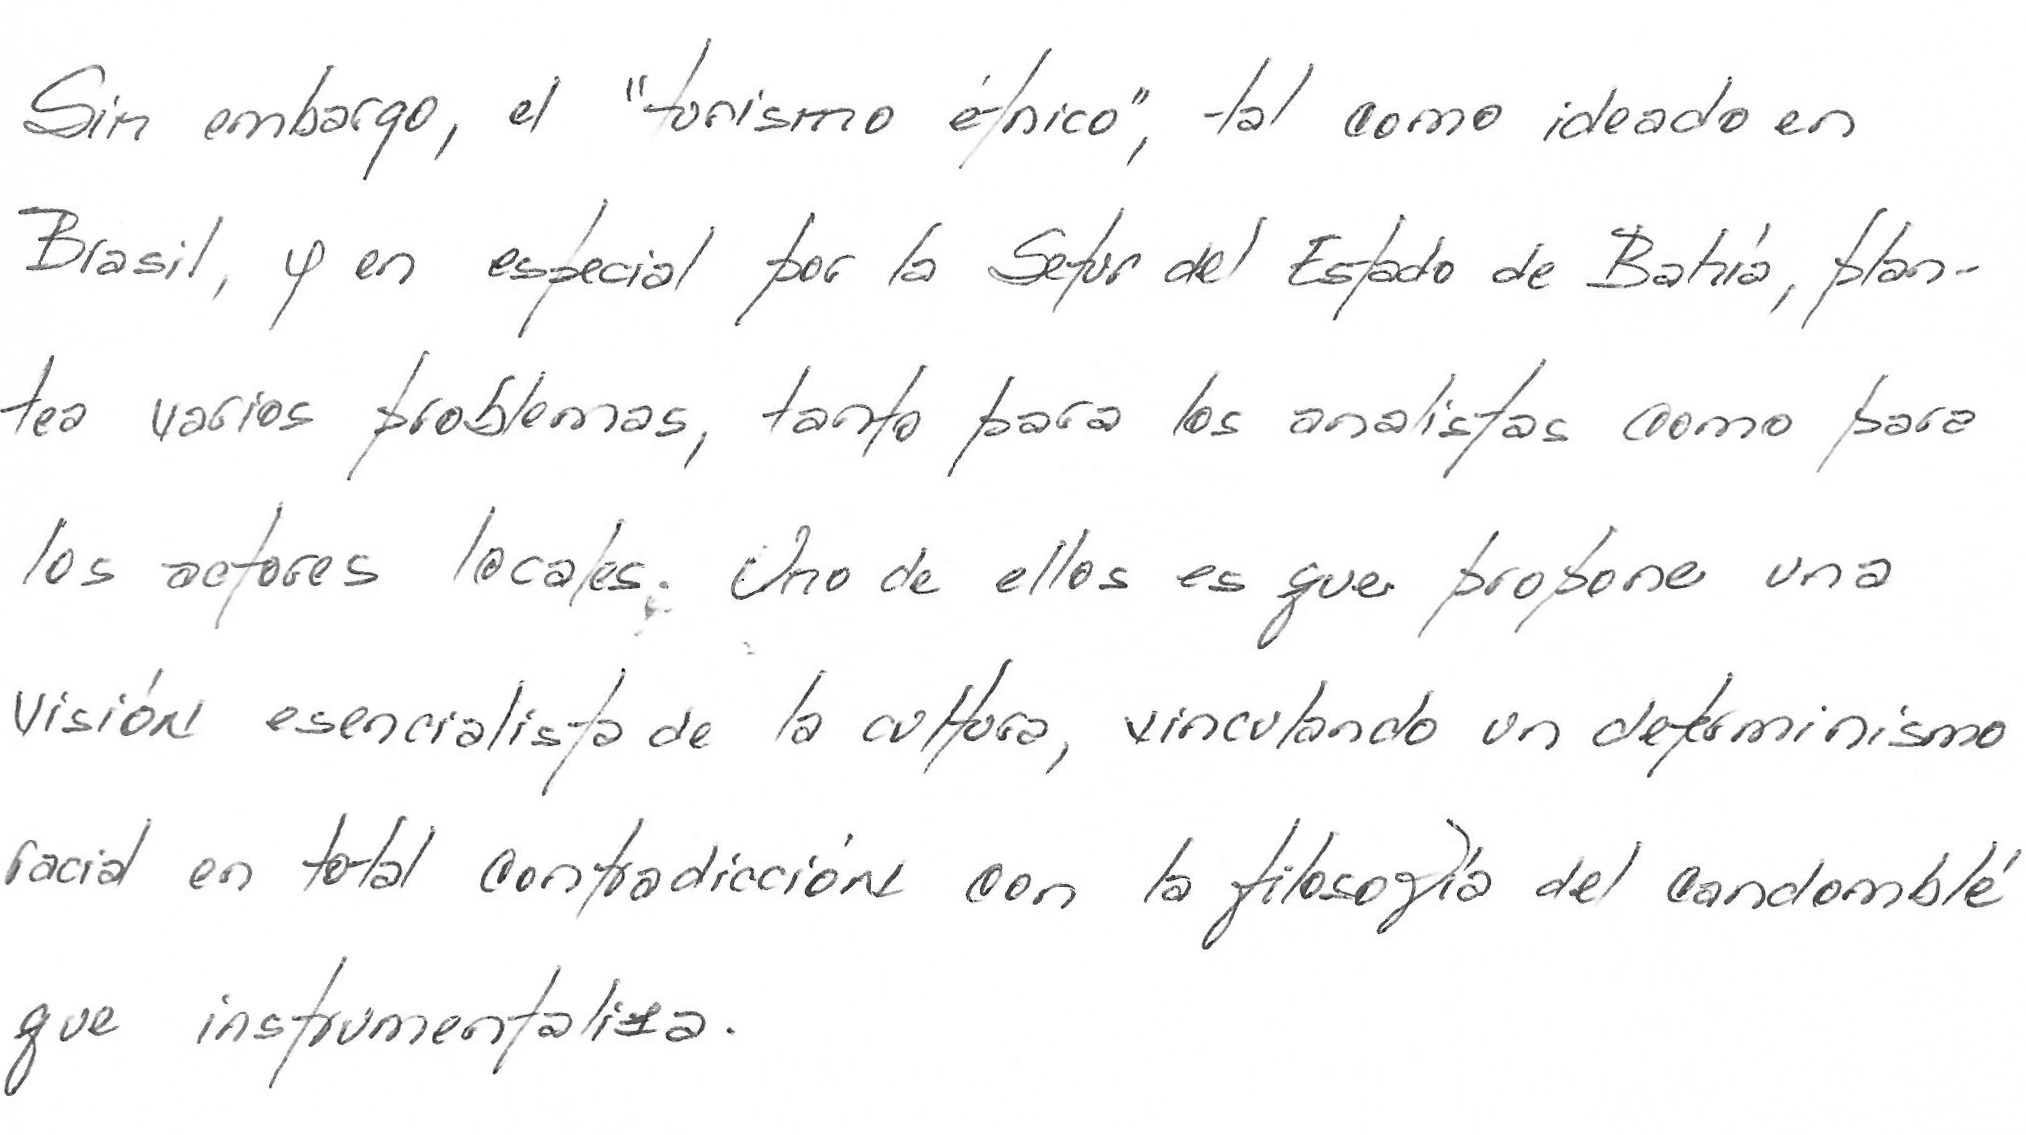 Sin embargo, el "turismo étnico", tal como ideado en
Brasil, y en especial por la Setur del Estado de Bahía, plan-
tea varios problemas, tanto para los analistas como para
los actores locales. Uno de ellos es que propone una
visión esencialista de la cultura, vinculando un determinismo
racial en total contradicción con la filosofía del candomblé
que instrumentaliza.